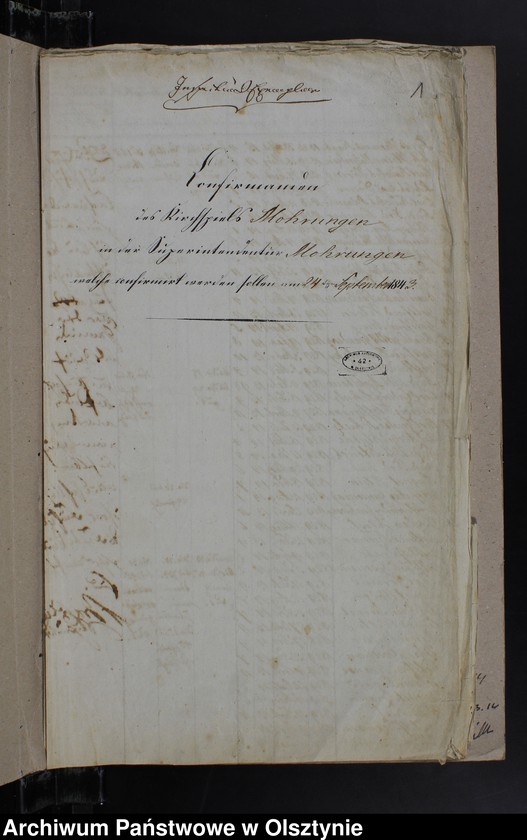 1
Confirmanden
des Kirchspiels Mohrungen
in der Superintendentur Mohrungen
welche confirmirt werden sollen am 24 September 1843.
42
Archiwum Państwowe w Olsztynie